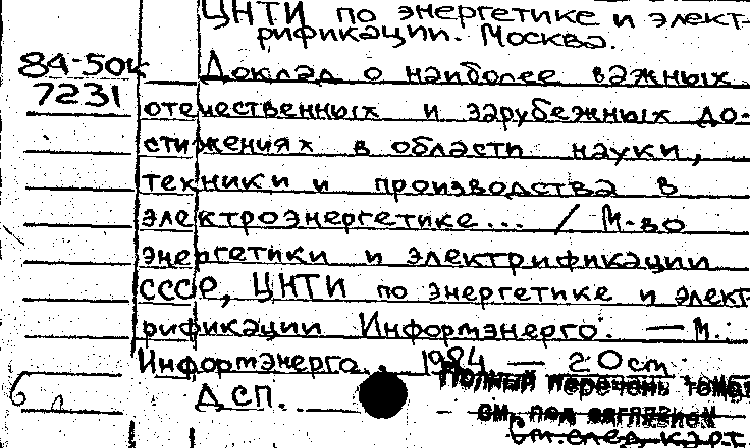 ЦНТИ по энергетике и элект-
рификации. Москва.
84-50к
Доклад о наиболее важных
7231
отечественных и зарубежных до-
стижениях в области науки,
техники и производства в
электроэнергетике... / М-во
энергетики и электрификации
СССР, ЦНТИ по энергетике и элект-
рификации Информэнерго. — М.:
Информэнерго, 1984 — 20 см.
Полный перечень томов
6 ДСП.
см. под заглавием
См. след. карт.